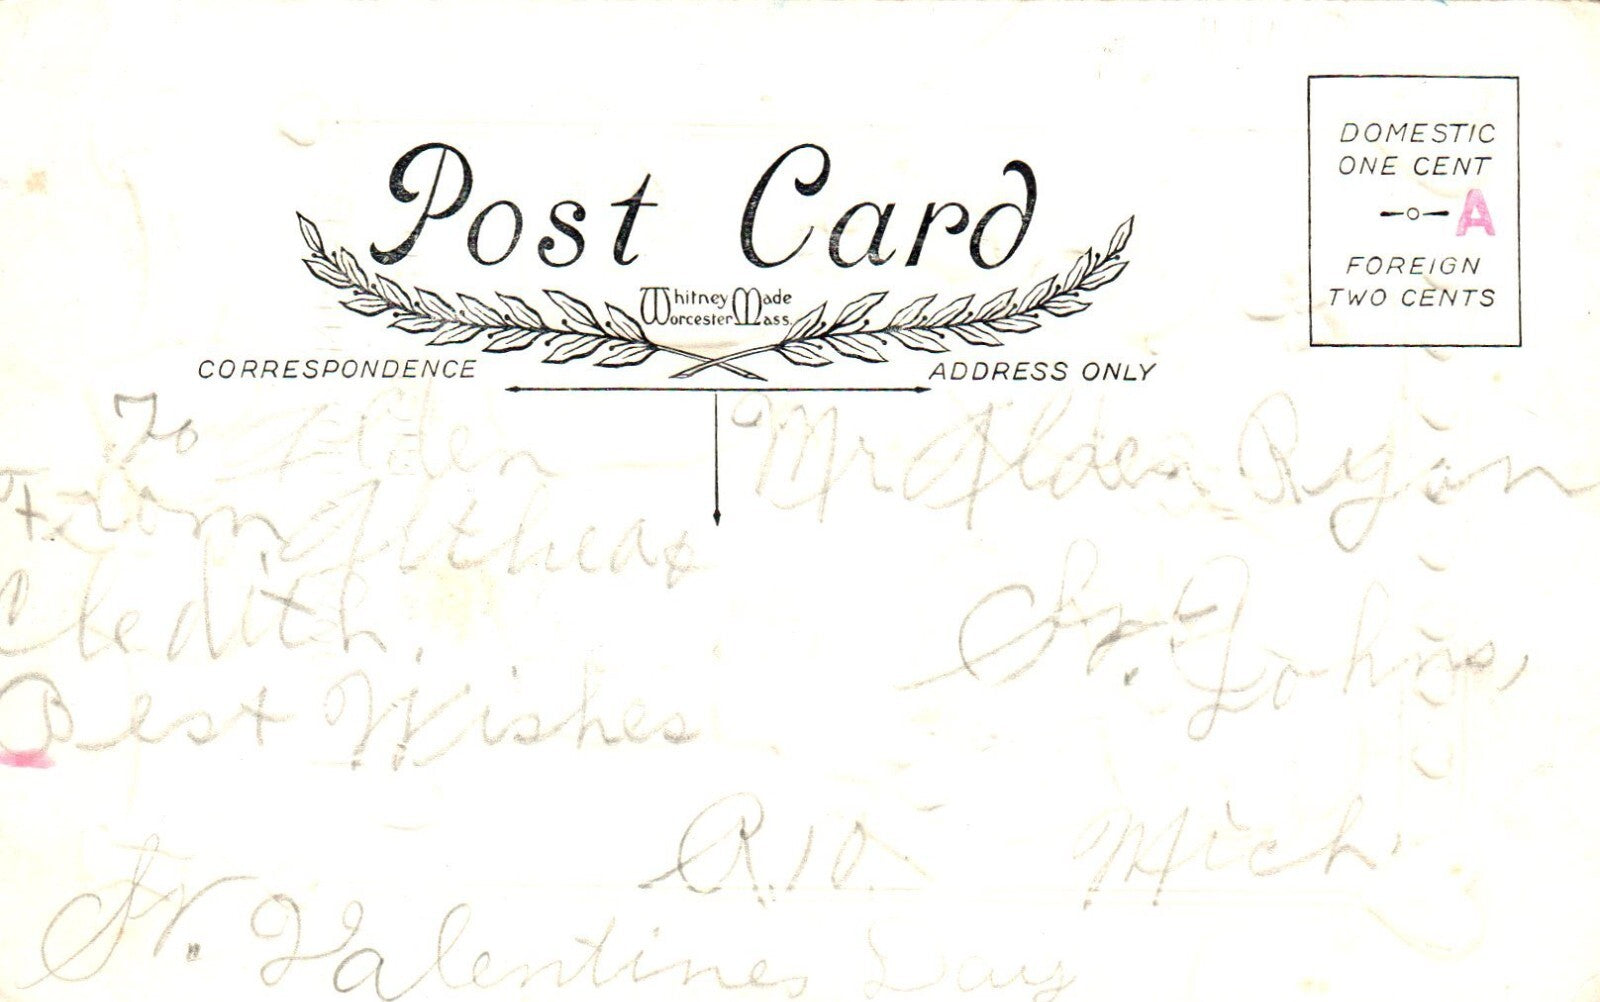 Post Card
Whitney Made
Worcester Mass.
DOMESTIC
ONE CENT
A
FOREIGN
TWO CENTS
CORRESPONDENCE
ADDRESS ONLY
To Alden
From
Cledith
Best Wishes
St. Valentines Day
Mr Alden Ryan
St. Johns,
R.10. Mich.